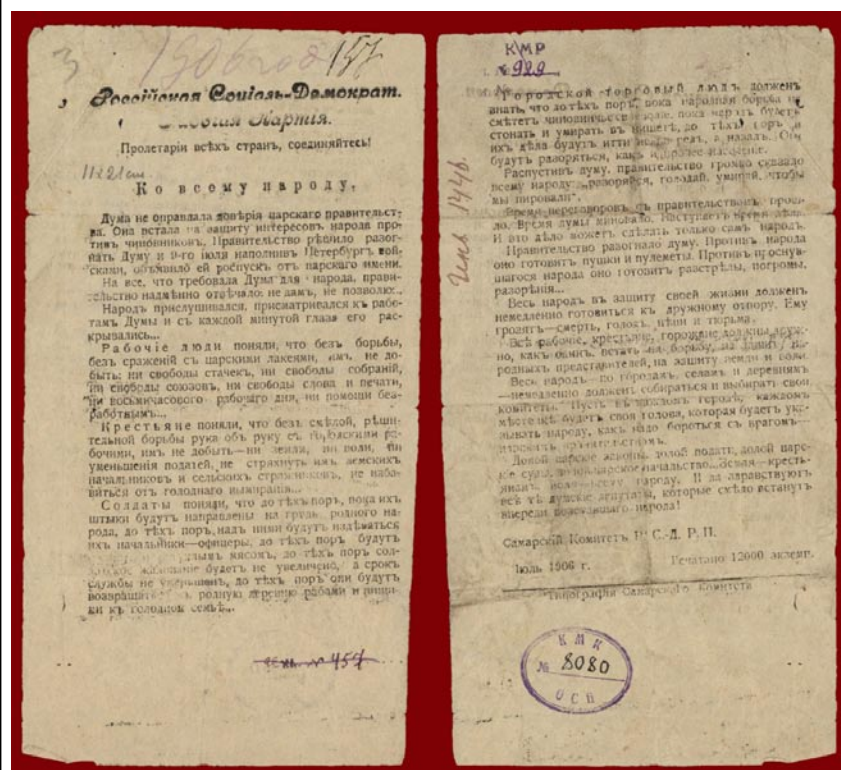 3
1906 год
157
Россійская Соціаль-Демократ.
Рабочая Партія.
Пролетаріи всѣхъ странъ, соединяйтесь!
11×21 см.
Ко всему народу,
Дума не оправдала довѣрія царскаго правительст-
ва. Она встала на защиту интересовъ народа про-
тивъ чиновниковъ. Правительство рѣшило разог-
нать Думу и 9-го іюля наполнивъ Петербургъ вой-
сками, объявило ей роспускъ отъ царскаго имени.
На все, что требовала Дума для народа, прави-
тельство надмѣнно отвѣчало: не дамъ, не позволю...
Народъ прислушивался, присматривался къ рабо-
тамъ Думы и съ каждой минутой глаза его рас-
крывались...
Рабочіе люди поняли, что безъ борьбы,
безъ сраженій съ царскими лакеями, имъ не до-
быть: ни свободы стачекъ, ни свободы собраній,
ни свободы союзовъ, ни свободы слова и печати,
ни восьмичасового рабочаго дня, ни помощи без-
работнымъ...
Крестьяне поняли, что безъ смѣлой, рѣши-
тельной борьбы рука объ руку съ городскими ра-
бочими, имъ не добыть—ни земли, ни воли, ни
уменьшенія податей, не стряхнуть имъ земскихъ
начальниковъ и сельскихъ стражниковъ, не изба-
виться отъ голоднаго вымиранія...
Солдаты поняли, что до тѣхъ поръ, пока ихъ
штыки будутъ направлены на грудь родного на-
рода, до тѣхъ поръ надъ ними будутъ издѣваться
ихъ начальники—офицеры, до тѣхъ поръ будутъ
мясомъ, до тѣхъ поръ сол-
жалованіе будетъ не увеличено, а срокъ
службы не уменьшенъ, до тѣхъ поръ они будутъ
возвращаться въ родную деревню рабами и нищи-
ми къ голодной семьѣ...
№ 457
КМР
№ 929
Городской торговый людъ долженъ
знать, что до тѣхъ поръ, пока народная борьба не
сметётъ чиновничье, пока народъ будетъ
стонать и умирать въ нищетѣ, до тѣхъ поръ и
ихъ дѣла будутъ итти не впередъ, а назадъ. Они
будутъ разоряться, какъ и прочее населеніе.
Распустивъ думу, правительство громко сказало
всему народу: „разоряйся, голодай, умирай, чтобы
мы пировали“.
Время переговоровъ съ правительствомъ прош-
ло. Время думы миновало. Наступаетъ время дѣла.
И это дѣло можетъ сдѣлать только самъ народъ.
Правительство разогнало думу. Противъ народа
оно готовитъ пушки и пулеметы. Противъ проснув-
шагося народа оно готовитъ разстрѣлы, погромы,
разорѣнія...
Весь народъ въ защиту своей жизни долженъ
немедленно готовиться къ дружному отпору. Ему
грозятъ—смерть, голодъ, цѣпи и тюрьма.
Всѣ рабочіе, крестьяне, горожане должны друж-
но, какъ одинъ, встать на борьбу, на защиту на-
родныхъ представителей, на защиту земли и воли.
Весь народъ—по городамъ, селамъ и деревнямъ
—немедленно долженъ собираться и выбирать свои
комитеты. Пусть въ каждомъ городѣ, каждомъ
мѣстечкѣ будетъ своя голова, которая будетъ ука-
зывать народу, какъ надо бороться съ врагомъ—
царскимъ правительствомъ.
Долой царскіе законы, долой подати, долой царс-
кіе суды, долой царское начальство... Земля—кресть-
янамъ, воля—всему народу. И да здравствуютъ
всѣ тѣ думскіе депутаты, которые смѣло встанутъ
впереди возставшаго народа!
Самарскій Комитетъ Р. С.-Д. Р. П.
Іюль 1906 г. Печатано 12000 экземп.
Типографія Самарскаго Комитета
Инв 1446.
КМК
№ 8080
ОСП